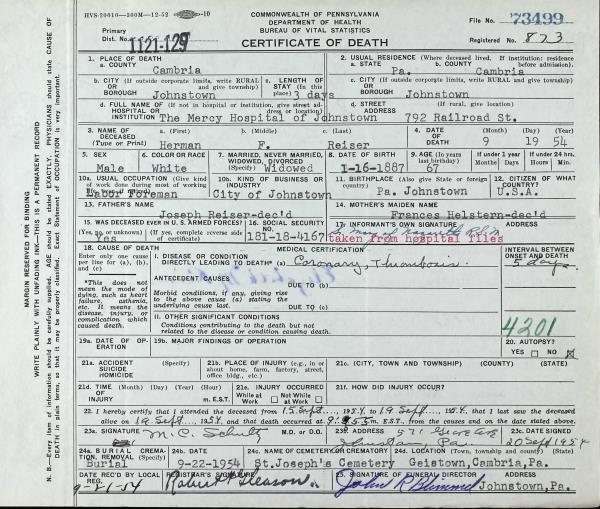 HVS-20610—300M—12-52 10
COMMONWEALTH OF PENNSYLVANIA
DEPARTMENT OF HEALTH
BUREAU OF VITAL STATISTICS
CERTIFICATE OF DEATH
File No. 73499
Primary
Dist. No. 1121-129
Registered No. 823
1. PLACE OF DEATH
a. COUNTY
Cambria
2. USUAL RESIDENCE (Where deceased lived. If institution: residence before admission).
a. STATE b. COUNTY
Pa. Cambria
b. CITY (If outside corporate limits, write RURAL and give township)
OR
BOROUGH Johnstown
c. LENGTH OF STAY (In this place) 3 days
c. CITY (If outside corporate limits, write RURAL and give township)
OR
BOROUGH Johnstown
d. FULL NAME OF (If not in hospital or institution, give street address or location)
HOSPITAL OR
INSTITUTION The Mercy Hospital of Johnstown
d. STREET (If rural, give location)
ADDRESS
792 Railroad St.
3. NAME OF DECEASED (Type or Print)
a. (First) b. (Middle) c. (Last)
Herman F. Reiser
4. DATE OF DEATH (Month) (Day) (Year)
9 19 54
5. SEX
Male
6. COLOR OR RACE
White
7. MARRIED, NEVER MARRIED, WIDOWED, DIVORCED (Specify)
Widowed
8. DATE OF BIRTH
1-16-1887
9. AGE (In years last birthday)
67
If under 1 year
Months Days
If under 24 hrs.
Hours Min.
10a. USUAL OCCUPATION (Give kind of work done during most of working
Labor Foreman
10b. KIND OF BUSINESS OR INDUSTRY
City of Johnstown
11. BIRTHPLACE (Also give State or foreign country)
Pa. Johnstown
12. CITIZEN OF WHAT COUNTRY?
U.S.A.
13. FATHER'S NAME
Joseph Reiser-dec'd
14. MOTHER'S MAIDEN NAME
Frances Helstern-dec'd
15. WAS DECEASED EVER IN U.S. ARMED FORCES?
(Yes, no or unknown) (If yes, complete reverse side of certificate)
Yes
16. SOCIAL SECURITY NO.
181-18-4167
17. INFORMANT'S OWN SIGNATURE
taken from hospital files
18. CAUSE OF DEATH
Enter only one cause per line for (a), (b), and (c).
*This does not mean the mode of dying, such as heart failure, asthenia, etc. It means the disease, injury, or complication which caused death.
MEDICAL CERTIFICATION
I. DISEASE OR CONDITION
DIRECTLY LEADING TO DEATH* (a) Coronary Thrombosis
INTERVAL BETWEEN ONSET AND DEATH
5 days
ANTECEDENT CAUSES
DUE TO (b)
Morbid conditions, if any, giving rise to the above cause (a) stating the underlying cause last.
DUE TO (c)
II. OTHER SIGNIFICANT CONDITIONS
Conditions contributing to the death but not related to the disease or condition causing death.
4201
19a. DATE OF OPERATION
19b. MAJOR FINDINGS OF OPERATION
20. AUTOPSY?
YES NO X
21a. ACCIDENT SUICIDE HOMICIDE (Specify)
21b. PLACE OF INJURY (e.g., in or about home, farm, factory, street, office bldg., etc.)
21c. (CITY, TOWN, AND TOWNSHIP) (COUNTY) (STATE)
21d. TIME (Month) (Day) (Year) (Hour)
OF
INJURY m. EST.
21e. INJURY OCCURRED
While at Work Not While at Work
21f. HOW DID INJURY OCCUR?
22. I hereby certify that I attended the deceased from 15 Sept, 1954 to 19 Sept, 1954, that I last saw the deceased
alive on 19 Sept, 1954, and that death occurred at 9:55 m. EST., from the causes and on the date stated above.
23a. SIGNATURE (M.D. or D.O.)
M. C. Schultz
23b. ADDRESS
Johnstown, Pa.
23c. DATE SIGNED
20 Sept 1954
24a. BURIAL, CREMATION, REMOVAL (Specify)
Burial
24b. DATE
9-22-1954
24c. NAME OF CEMETERY OR CREMATORY
St. Joseph's Cemetery
24d. LOCATION (Town, township and county) (State)
Geistown, Cambria, Pa.
DATE REC'D BY LOCAL REG.
9-21-54
REGISTRAR'S SIGNATURE
Robert Gleason
25. SIGNATURE OF FUNERAL DIRECTOR ADDRESS
John R Blimmel Johnstown, Pa.
MARGIN RESERVED FOR BINDING
WRITE PLAINLY WITH UNFADING INK—THIS IS A PERMANENT RECORD
N. B.—Every item of information should be carefully supplied. AGE should be stated EXACTLY. PHYSICIANS should state CAUSE OF
DEATH in plain terms, so that it may be properly classified. Exact Statement of OCCUPATION is very important.